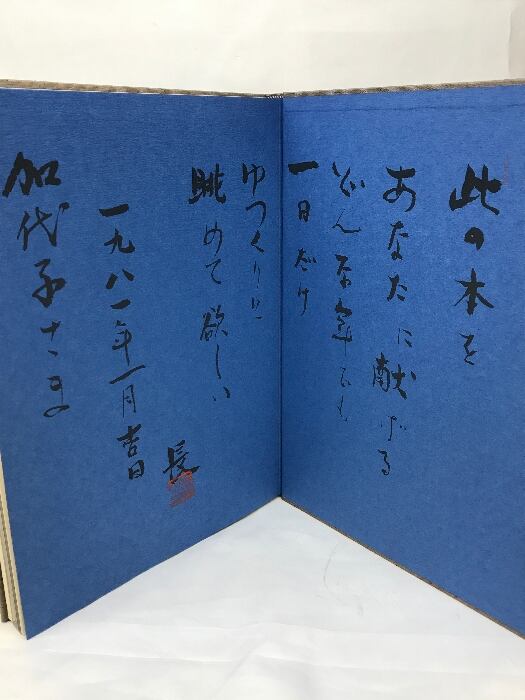 此の本を
あなたに献げる
どんな
一日だけ
ゆつくりに
眺めて欲しい
長
一九八一年一月吉日
加代子さま